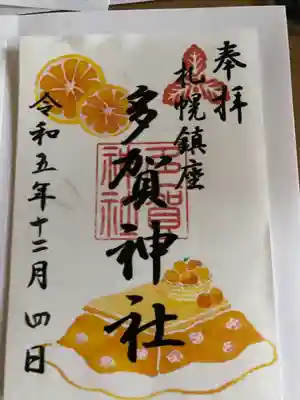 奉拝
札幌鎮座
多賀神社
多賀神社
令和五年十二月四日